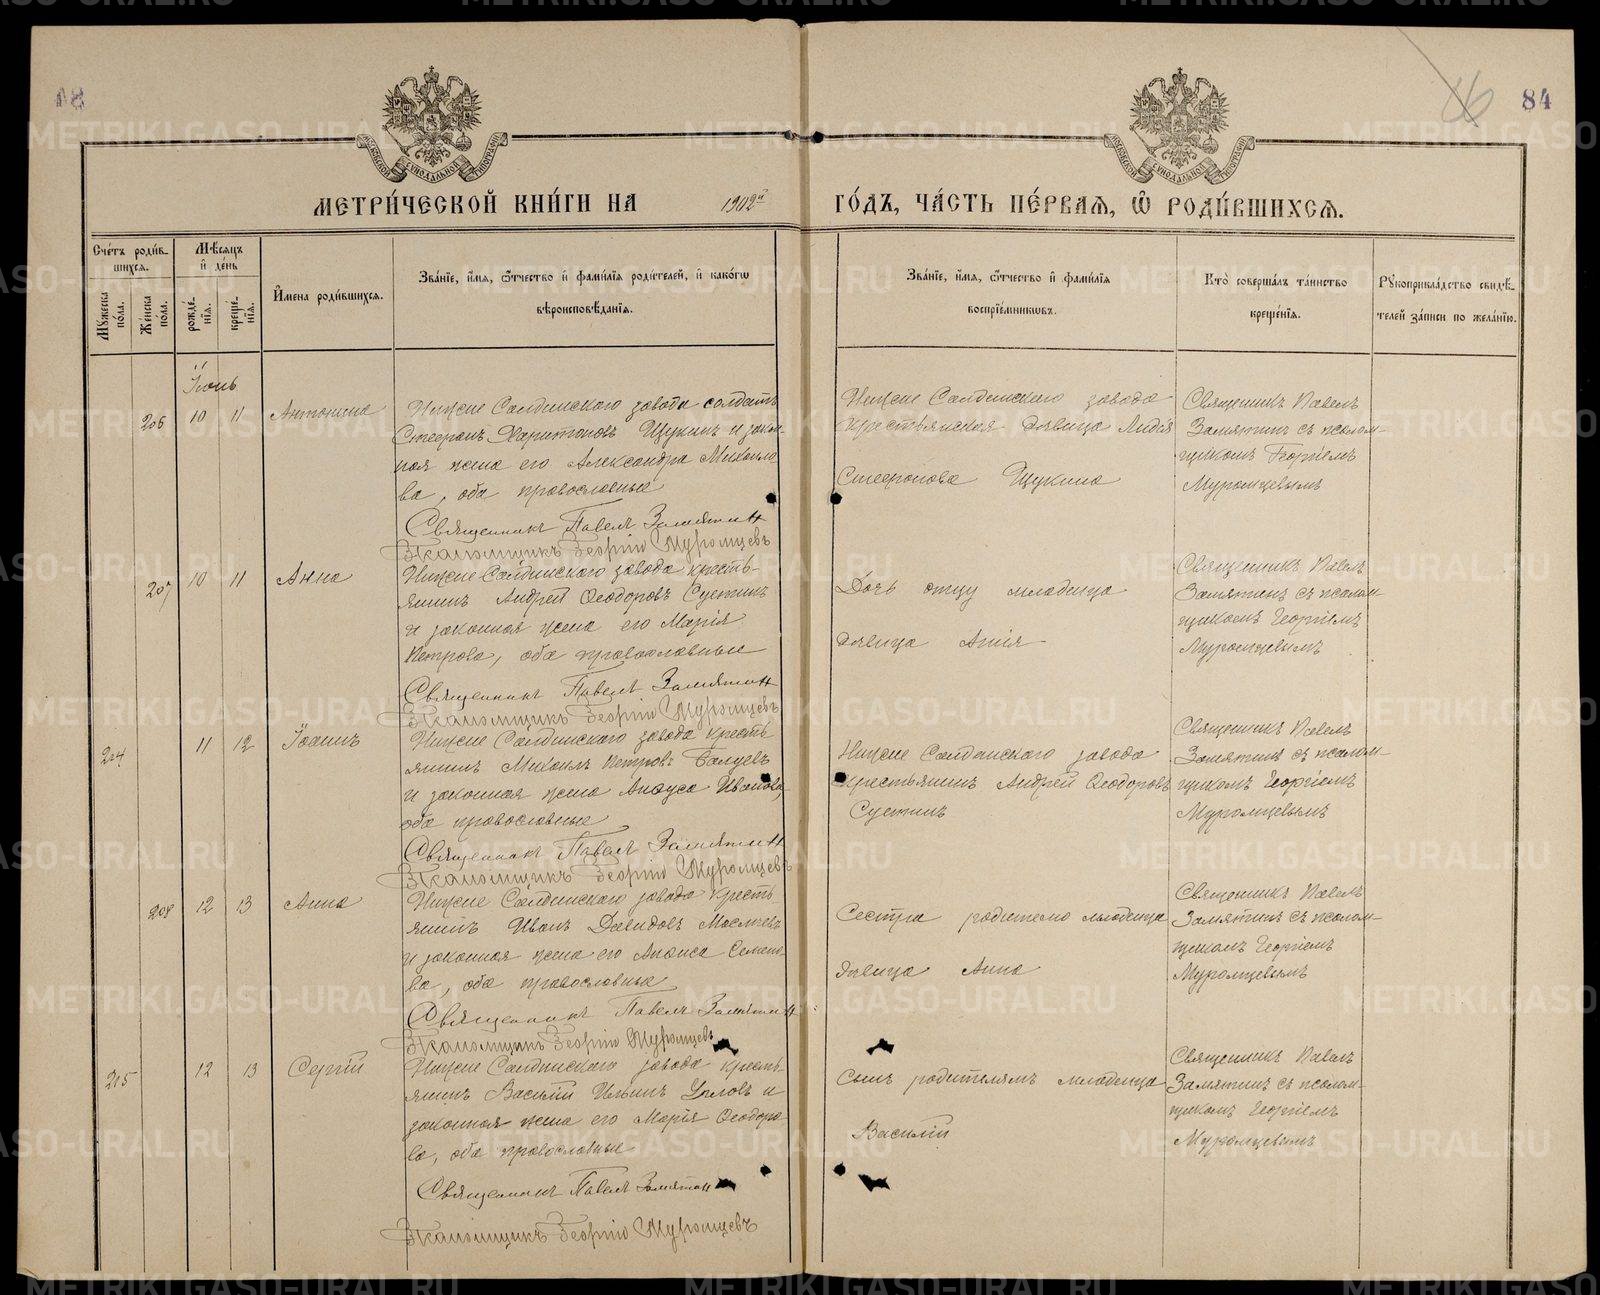 84
МЕТРИ́ЧЕСКОЙ КНИ́ГИ НА 1902й ГО́ДЪ, ЧА́СТЬ ПЕ́РВАЯ, Ѽ РОДИ́ВШИХСЯ.
Счётъ роди́вшихся.
Му́жеска по́ла.
Же́нска по́ла.
Мѣ́сяцъ и҆ де́нь
рожде́нїя.
креще́нїя.
И҆мена роди́вшихся.
Зва́нїе, и҆́мя, ѻ҆́тчество и҆ фами́лїя роди́телей, и҆ како́гѡ
вѣроисповѣ́данїя.
Зва́нїе, и҆́мя, ѻ҆́тчество и҆ фами́лїя
воспрїе́мниковъ.
Кто̀ соверша́лъ та́инство
креще́нїя.
Рꙋкоприкла́дство свидѣ́-
телей за́писи по жела́нїю.
Іюнь
206 10 11 Антонина
Нижне Салдинскаго завода солдатъ
Стефанъ Харитоновъ Щукинъ и закон-
ная жена его Александра Михаило-
ва, оба православные
Священникъ Павелъ Замятин
Псаломщикъ Георгій Муромцевъ
Нижне Салдинскаго завода
крестьянская дѣвица Лидія
Стефанова Щукина
Священникъ Павелъ
Замятинъ съ псалом-
щикомъ Георгіемъ
Муромцевымъ
207 10 11 Анна
Нижне Салдинскаго завода кресть-
янинъ Андрей Ѳеодоровъ Сустинъ
и законная жена его Марія
Петрова, оба православные
Священникъ Павелъ Замятин
Псаломщикъ Георгій Муромцевъ
Дочь отцу младенца
дѣвица
Священникъ Павелъ
Замятинъ съ псалом-
щикомъ Георгіемъ
Муромцевымъ
204 11 12 Іоаннъ
Нижне Салдинскаго завода кресть
янинъ Михаилъ Петровъ Балуевъ
и законная жена Анѳуса Иванова,
оба православные
Священникъ Павелъ Замятин
Псаломщикъ Георгій Муромцевъ
Нижне Салдинскаго завода
крестьянинъ Андрей Ѳеодоровъ
Сустинъ
Священникъ Павелъ
Замятинъ съ псалом-
щикомъ Георгіемъ
Муромцевымъ
208 12 13 Анна
Нижне Салдинскаго завода кресть
янинъ Иванъ Давидовъ
и законная жена его Анѳиса Семено-
ва, оба православные
Священникъ Павелъ Замятин
Псаломщикъ Георгій Муромцевъ
Сестра родителю младенца
дѣвица Анна
Священникъ Павелъ
Замятинъ съ псалом-
щикомъ Георгіемъ
Муромцевымъ
205 12 13 Сергій
Нижне Салдинскаго завода кресть-
янинъ Василій Ильинъ и
законная жена его Марія Ѳеодоро-
ва, оба православные
Священникъ Павелъ Замятин
Псаломщикъ Георгій Муромцевъ
Сынъ родителямъ младенца
Василій
Священникъ Павелъ
Замятинъ съ псалом-
щикомъ Георгіемъ
Муромцевымъ
METRIKI.GASO-URAL.RU